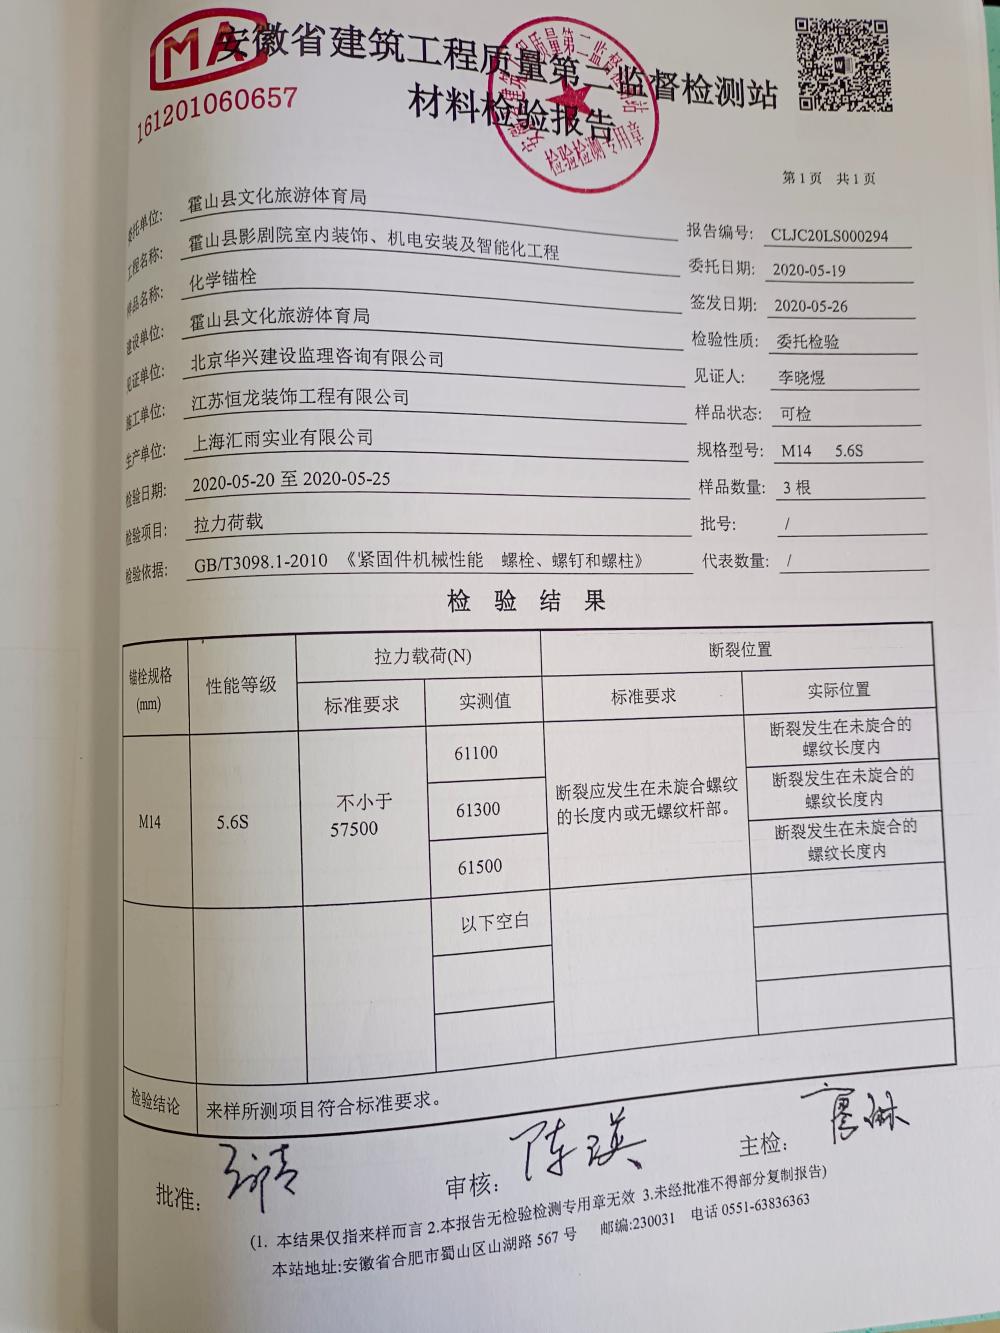 MA
161201060657
安徽省建筑工程质量第二监督检测站
材料检验报告
检验检测专用章
第1页 共1页
委托单位: 霍山县文化旅游体育局
报告编号: CLJC20LS000294
工程名称: 霍山县影剧院室内装饰、机电安装及智能化工程
委托日期: 2020-05-19
样品名称: 化学锚栓
签发日期: 2020-05-26
建设单位: 霍山县文化旅游体育局
检验性质: 委托检验
见证单位: 北京华兴建设监理咨询有限公司
见证人: 李晓煜
施工单位: 江苏恒龙装饰工程有限公司
样品状态: 可检
生产单位: 上海汇雨实业有限公司
规格型号: M14 5.6S
检验日期: 2020-05-20 至 2020-05-25
样品数量: 3 根
检验项目: 拉力荷载
批号: /
检验依据: GB/T3098.1-2010 《紧固件机械性能 螺栓、螺钉和螺柱》
代表数量: /
检 验 结 果
锚栓规格
(mm)
性能等级
拉力载荷(N)
断裂位置
标准要求
实测值
标准要求
实际位置
M14
5.6S
不小于
57500
61100
61300
61500
断裂应发生在未旋合螺纹
的长度内或无螺纹杆部。
断裂发生在未旋合的
螺纹长度内
断裂发生在未旋合的
螺纹长度内
断裂发生在未旋合的
螺纹长度内
以下空白
检验结论 来样所测项目符合标准要求。
批准:
审核: 陈瑛
主检: 廖琳
(1. 本结果仅指来样而言 2.本报告无检验检测专用章无效 3.未经批准不得部分复制报告)
本站地址:安徽省合肥市蜀山区山湖路 567 号 邮编:230031 电话 0551-63836363